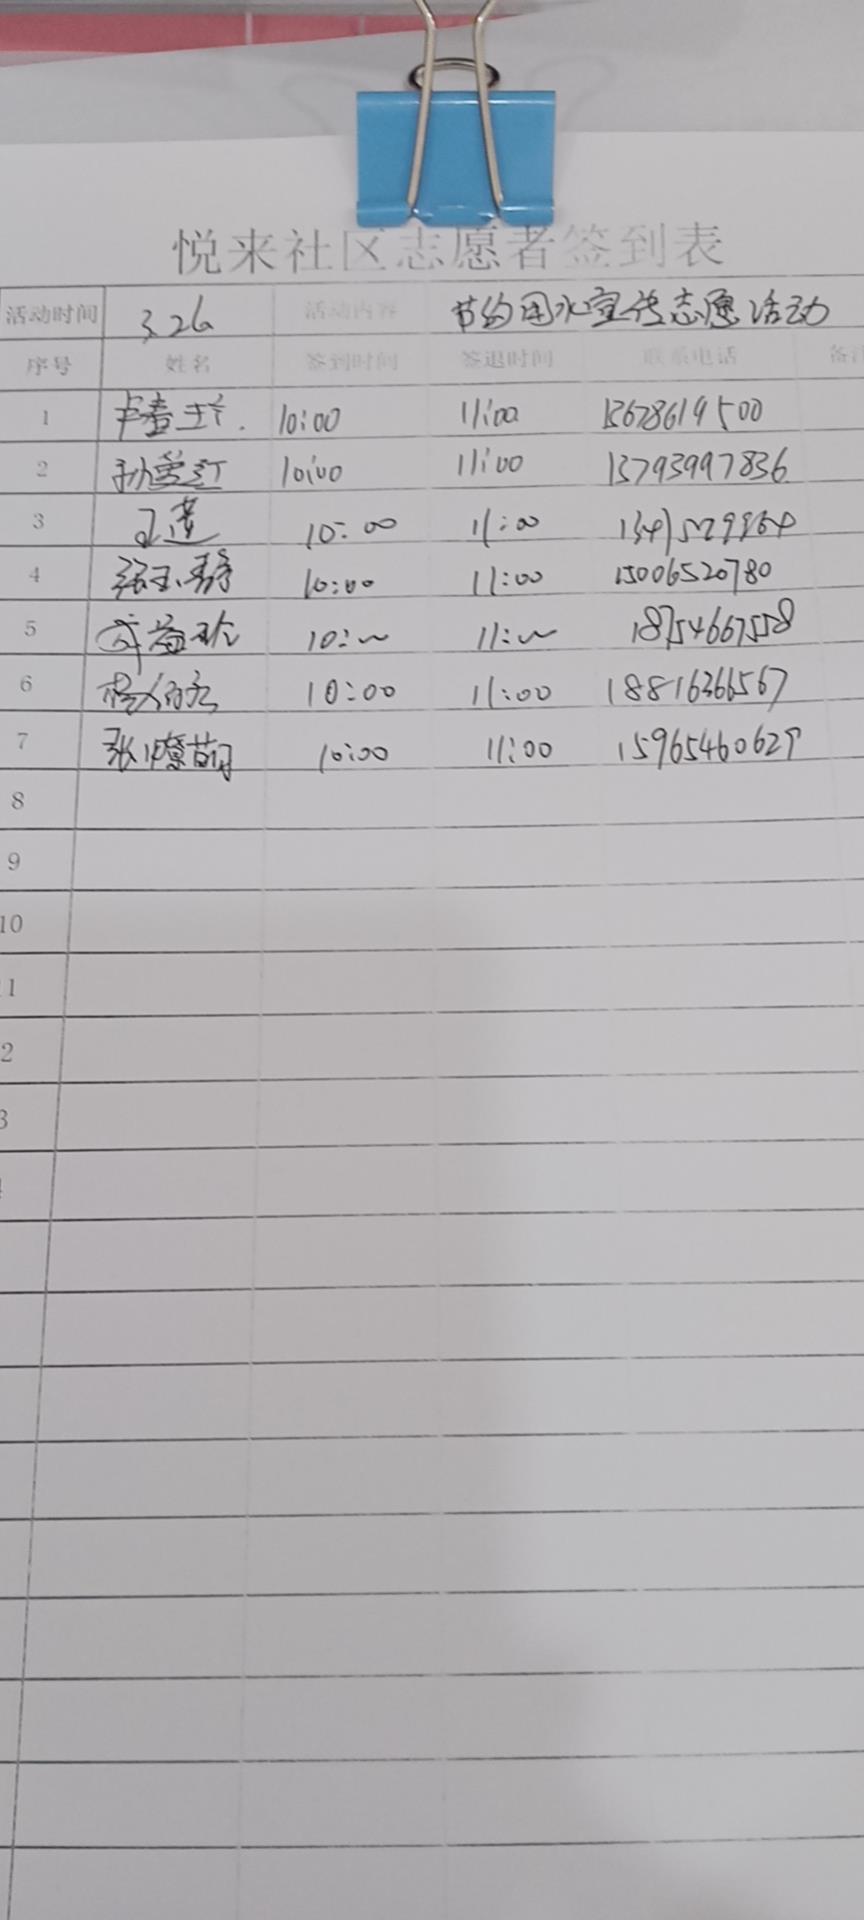 悦来社区志愿者签到表
活动时间 3.26 活动内容 节约用水宣传志愿活动
序号 姓名 签到时间 签退时间 联系电话 备注
1 10:00 11:00 13678619500
2 孙爱红 10:00 11:00 13793997836
3 王莲 10:00 11:00
4 张玉静 10:00 11:00 15006520780
5 10:00 11:00 18754667558
6 10:00 11:00 18816366567
7 10:00 11:00 15965460629
8
9
10